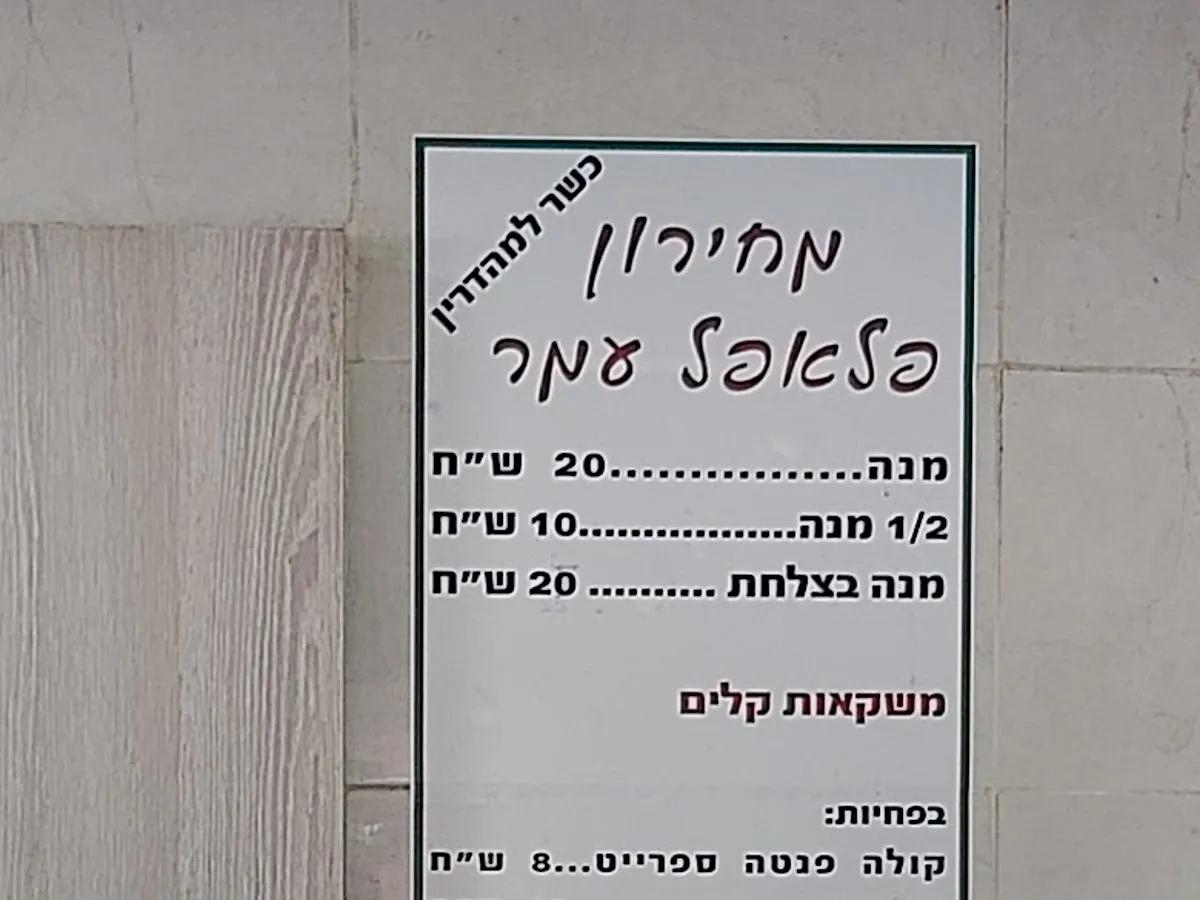 כשר למהדרין
מחירון
פלאפל עמר
מנה................20 ש״ח
1/2 מנה.................10 ש״ח
מנה בצלחת .......... 20 ש״ח
משקאות קלים
בפחיות:
קולה פנטה ספרייט...8 ש״ח